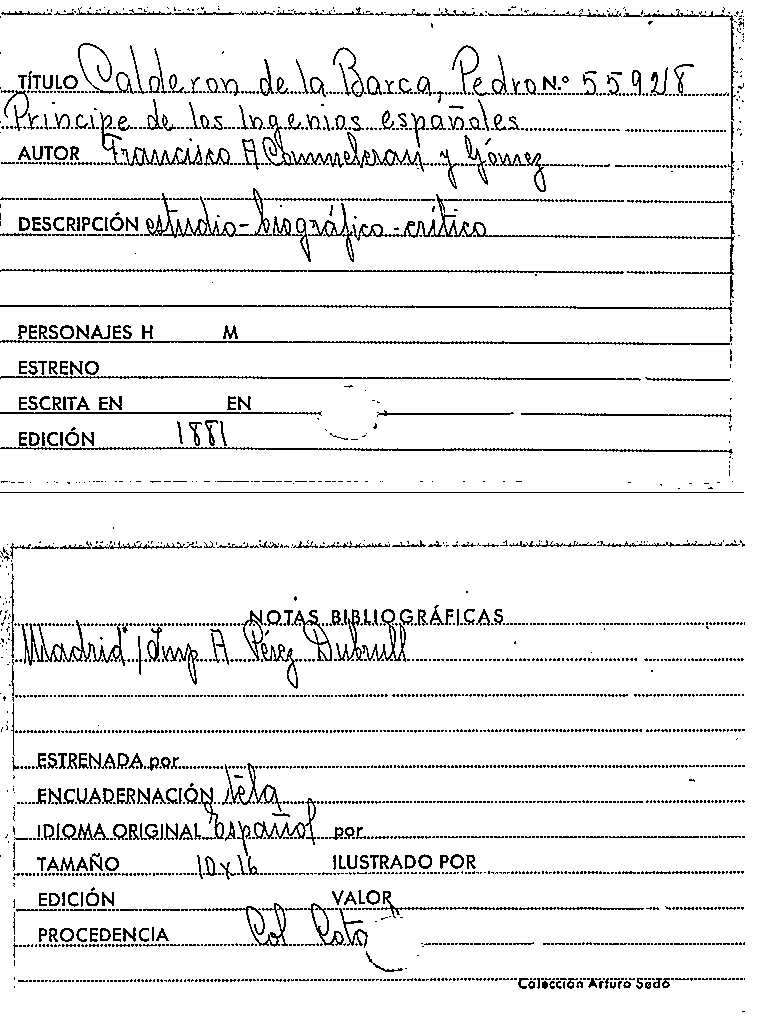 TÍTULO Calderón de la Barca, Pedro N.º 55928
Príncipe de los Ingenios españoles
AUTOR Francisco A Commelerán y Gómez
DESCRIPCIÓN estudio-biográfico-crítico
PERSONAJES H M
ESTRENO
ESCRITA EN EN
EDICIÓN 1881
NOTAS BIBLIOGRÁFICAS
Madrid / Imp A Pérez Dubrull
ESTRENADA por
ENCUADERNACIÓN tela
IDIOMA ORIGINAL Español por
TAMAÑO 10x16 ILUSTRADO POR
EDICIÓN VALOR
PROCEDENCIA Col Coto
Colección Arturo Sedó